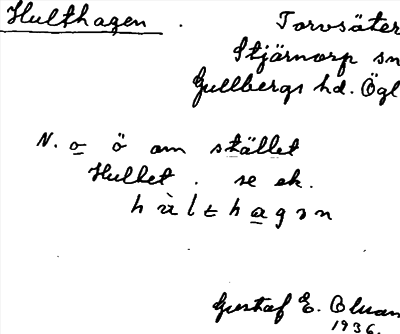 Hulthagen . Torvsäter
Stjärnorp sn
Gullbergs hd. Ögl
N. o ö om stället
Hulket . se ek.
hùlthagən
Gustaf E. Oluan
1936.